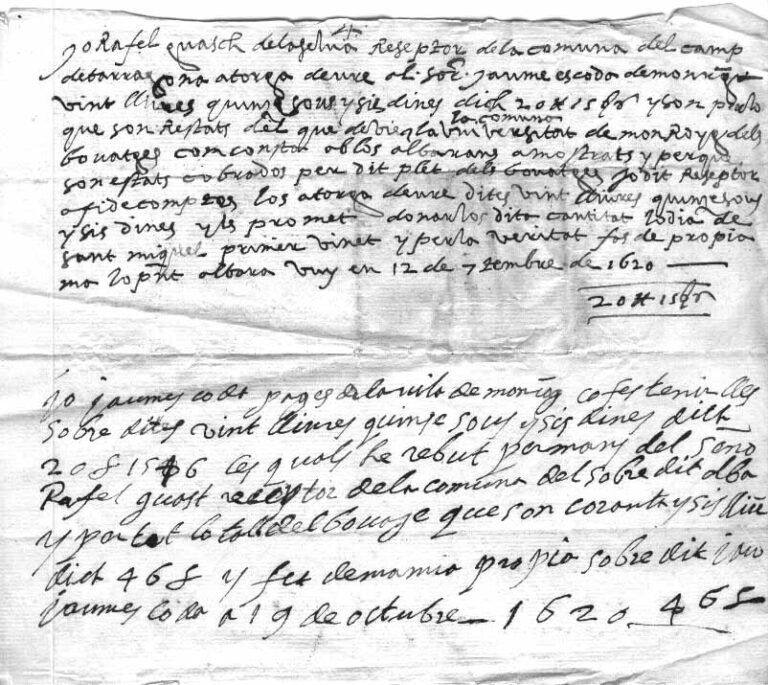 Jo Rafel guasch delaselva Reseptor de la comuna del camp
detarragona atorga deure al Sor. Jaume escoda demonrog
vint lliures quinse sous y sis dines dich 20 15 6 y son perlo
que son Restats del que devie la universitat de monRoyg dels
la comuna
bovatges com consta ab los albarans amostrats y perque
son estats cobrados per dit plet dels bovatges Jo dit Reseptor
afidecomptes los atorga deure dites vint lliures quinse sous
y sis dines y ls promet donarlos dita cantitat lo dia de
sant miquel primer vinet y perla veritat fas de propia
ma lo pnt albara vuy en 12 de 7tembre de 1620
20 15 6
Jo jaume scoda pages de la vila de monrog cofes tenir lles
sobre dites vint lliures quinse sous y sis dines dich
20 15 6 les quals he rebut permans del seno
Rafel guast receptor de la comuna del sobre dit alba
y per tot lo tall del bovage que son coranta y sis lliu
dich 46 y fet de ma mia propia sobre dit jau
jaume scoda a 19 de octubre 1620 46